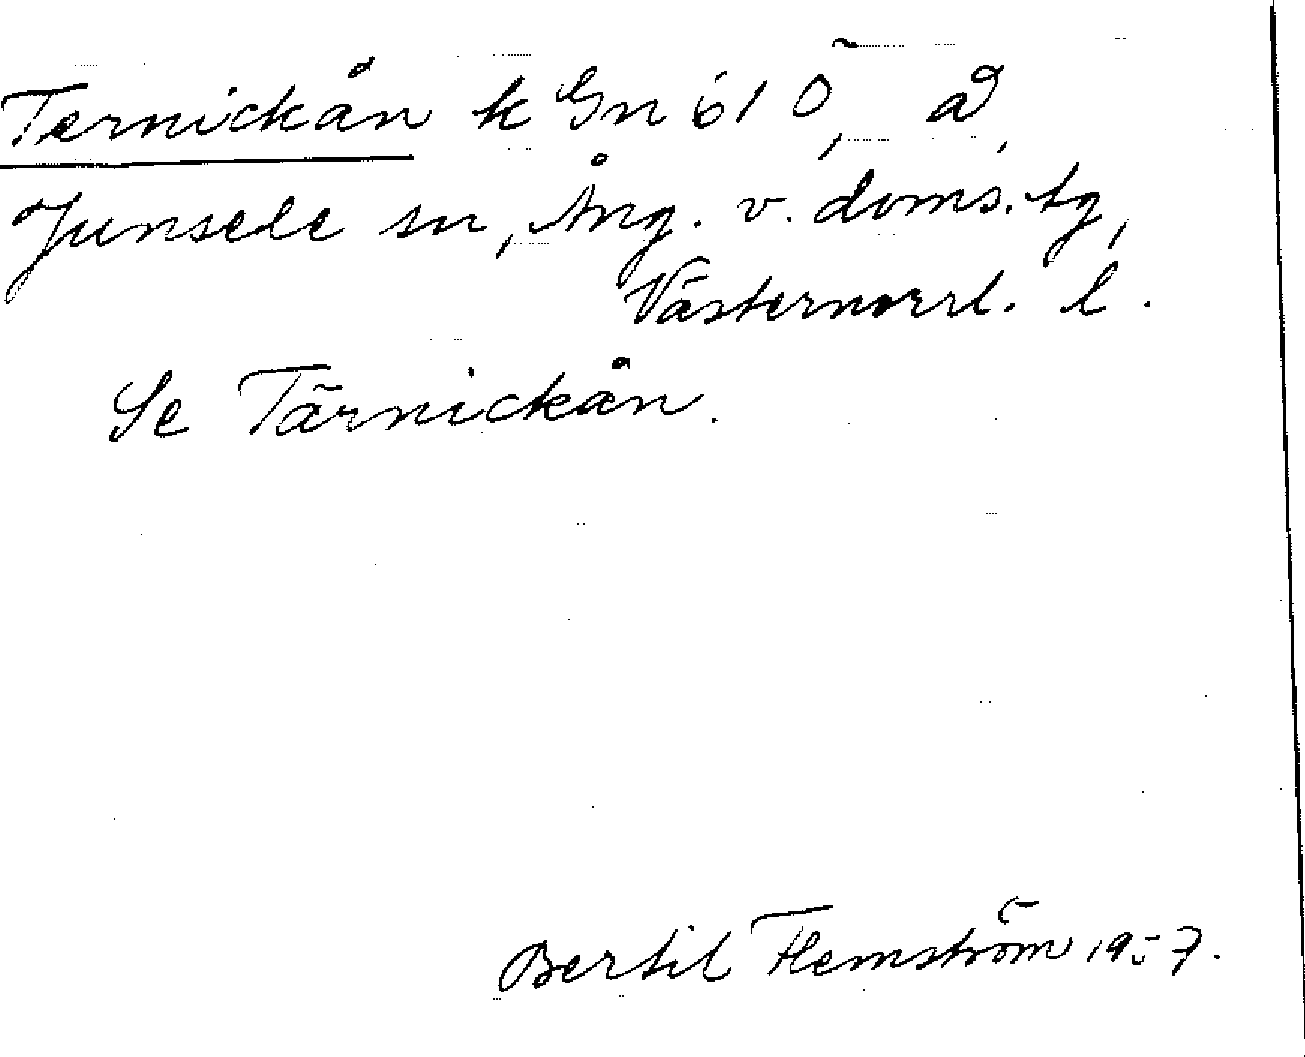 Ternickån k Gn 61 Ö, å
Junsele sn, Ång. v. doms. tg,
Västernorrl. l.
Se Tärnickån.
Bertil Flemström 1957.